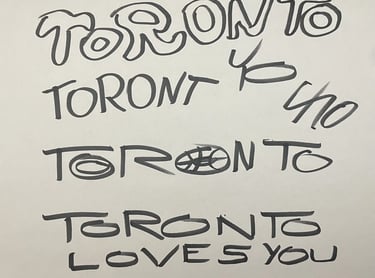 TORONTO
TORONT YO
YO
TORONTO
TORONTO
LOVES YOU